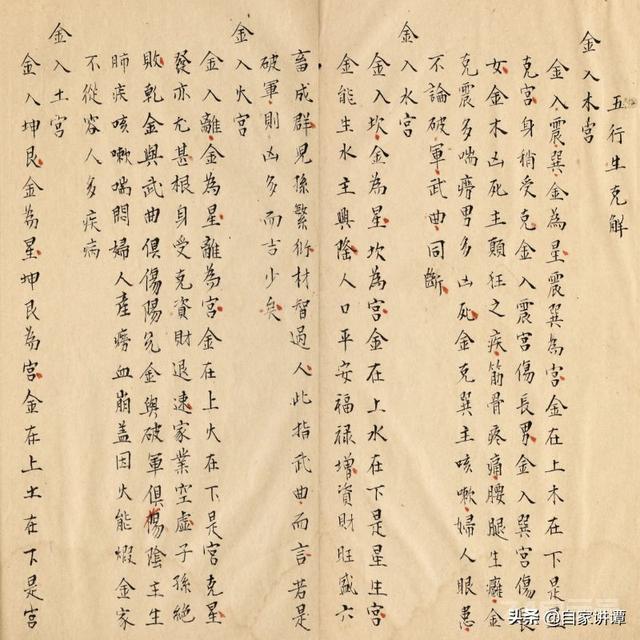 五行生克解
金入木宮
金入震巽金為星震巽為宮金在上木在下是
克宮身稍受克金入震宮傷長男金入巽宮傷長
女金木凶死主顛狂之疾筋骨疼痛腰腿生癱金
克震多喘癆男多凶死金克巽主咳嗽婦人眼患
不論破軍武曲同斷
金入水宮
金入坎金為星坎為宮金在上水在下是星生宮
金能生水主興隆人口平安福禄增資財旺盛六
畜成群兒孫繁衍材智過人此指武曲而言若是
破軍則凶多而吉少矣
金入火宮
金入離金為星離為宮金在上火在下是宮克星
發亦尤甚根身受克資財退速家業空虛子孫絕
敗乾金與武曲俱傷陽兌金與破軍俱傷陰主生
肺疾咳嗽喘悶婦人產癆血崩蓋因火能煅金家
不從容人多疾病
金入土宮
金入坤艮金為星坤艮為宮金在上土在下是宮
头条 @自家讲谭